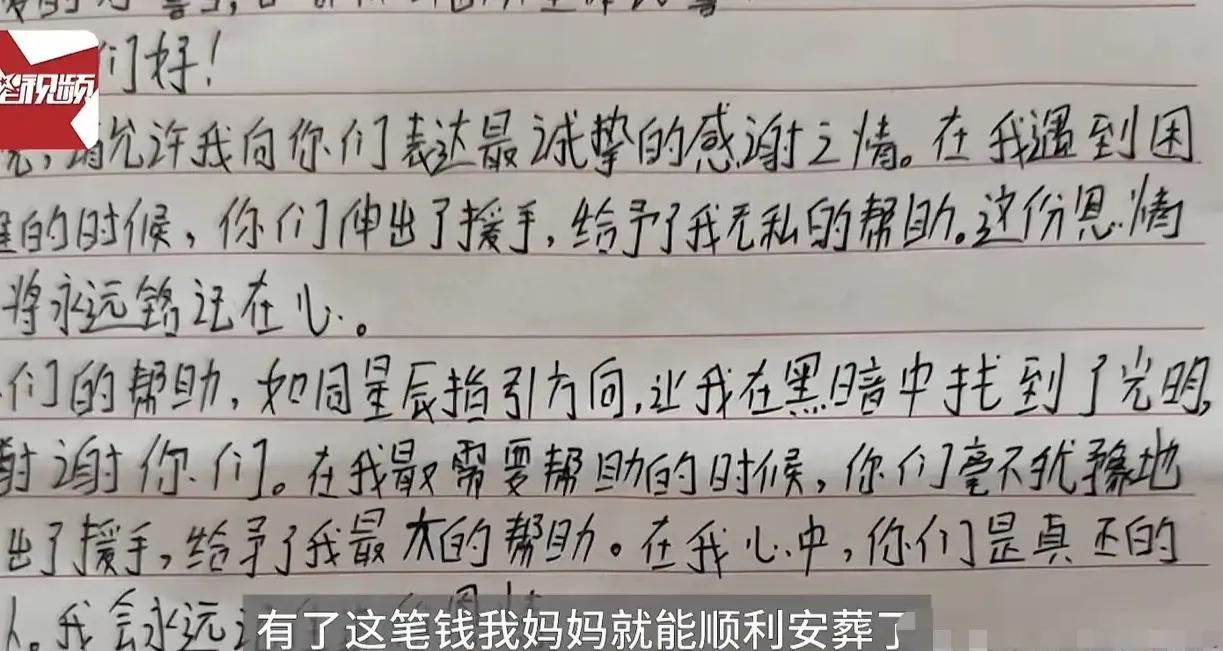 们好!
视频
允许我向你们表达最诚挚的感谢之情。在我遇到困
的时候,你们伸出了援手,给予了我无私的帮助。这份恩情
将永远铭记在心。
们的帮助,如同星辰指引方向,让我在黑暗中找到了光明,
谢谢你们。在我最需要帮助的时候,你们毫不犹豫地
出了援手,给予了我最大的帮助。在我心中,你们是真正的
人。我会永远
有了这笔钱我妈妈就能顺利安葬了